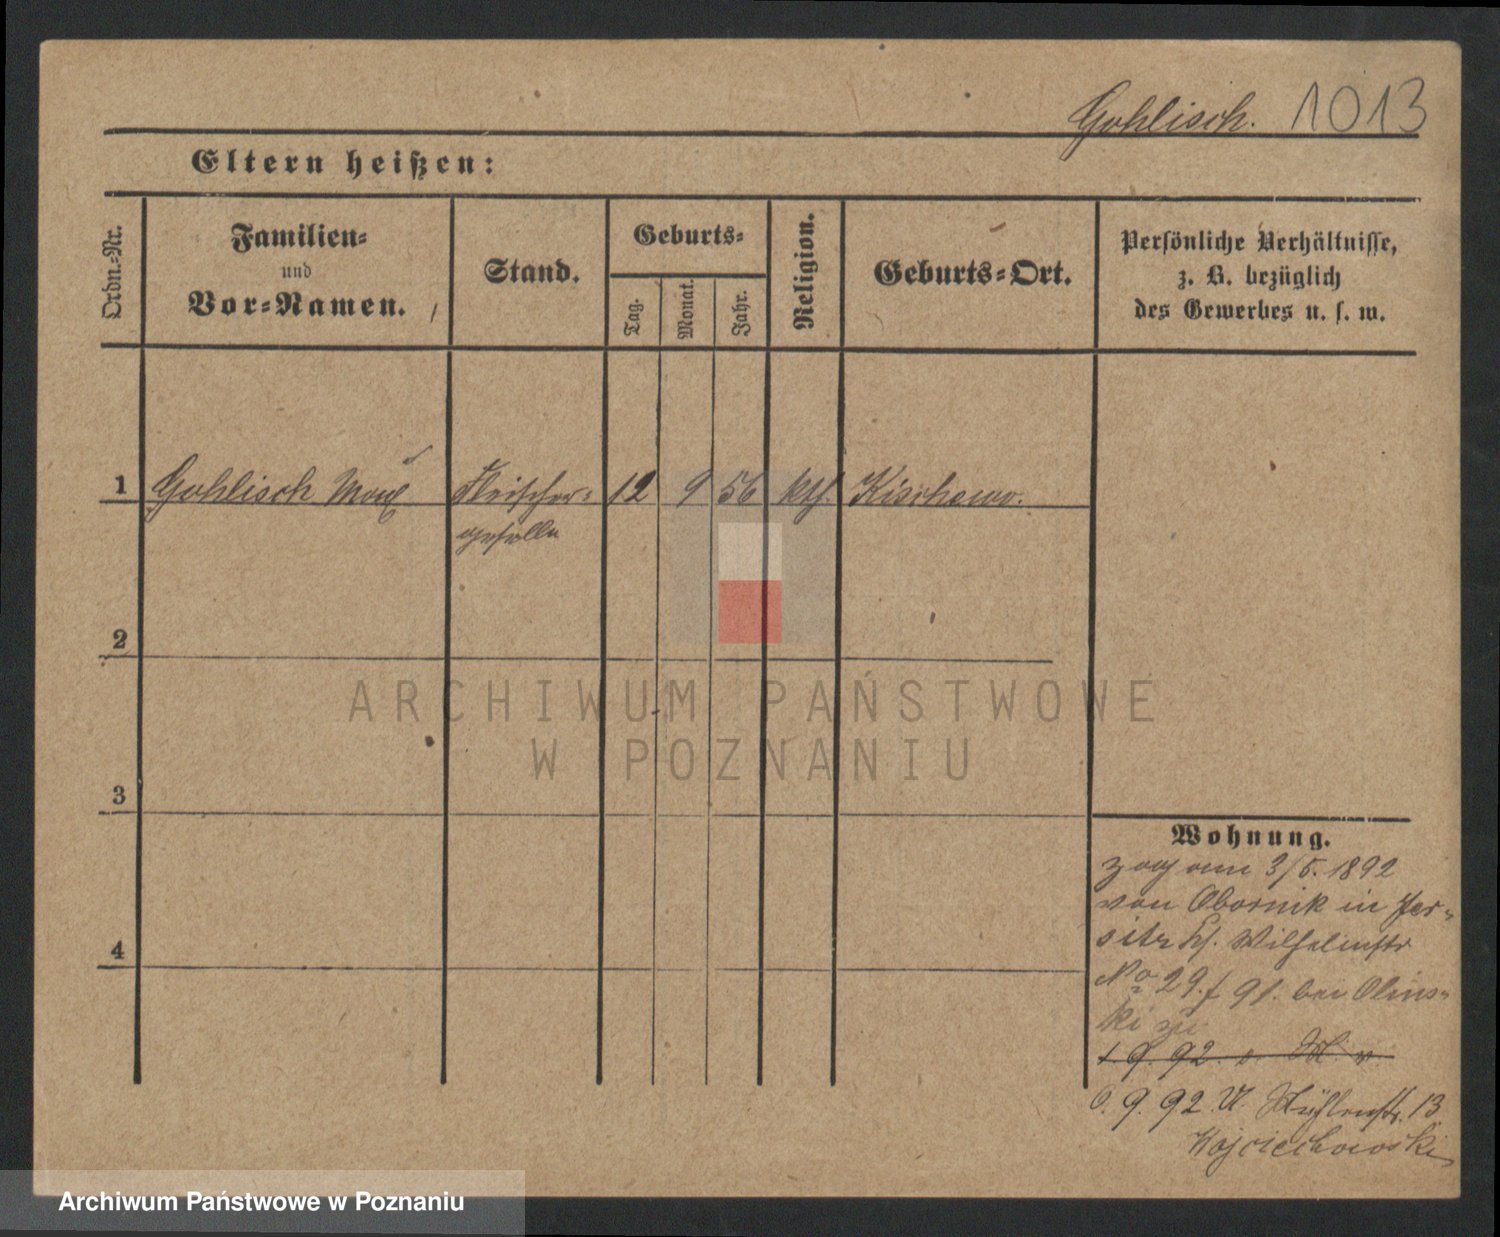 Gohlisch. 1013
Eltern heißen:
Ordn.-Nr.
Familien-
und
Vor-Namen.
Stand.
Geburts-
Tag. Monat. Jahr.
Religion.
Geburts-Ort.
Persönliche Verhältnisse,
z. B. bezüglich
des Gewerbes u. s. w.
1 Gohlisch Max Fleischer- 12 9 56 kth. Kischewo.
geselle
2
3
4
Wohnung.
zog am 3/5. 1892
von Obornik in Jer-
sitz Wilhelmstr
No 29. bei Olins-
ki zu
9. 92.
6. 9. 92. U. Mühlenstr. 13
Wojciechowski
ARCHIWUM PAŃSTWOWE
W POZNANIU
Archiwum Państwowe w Poznaniu